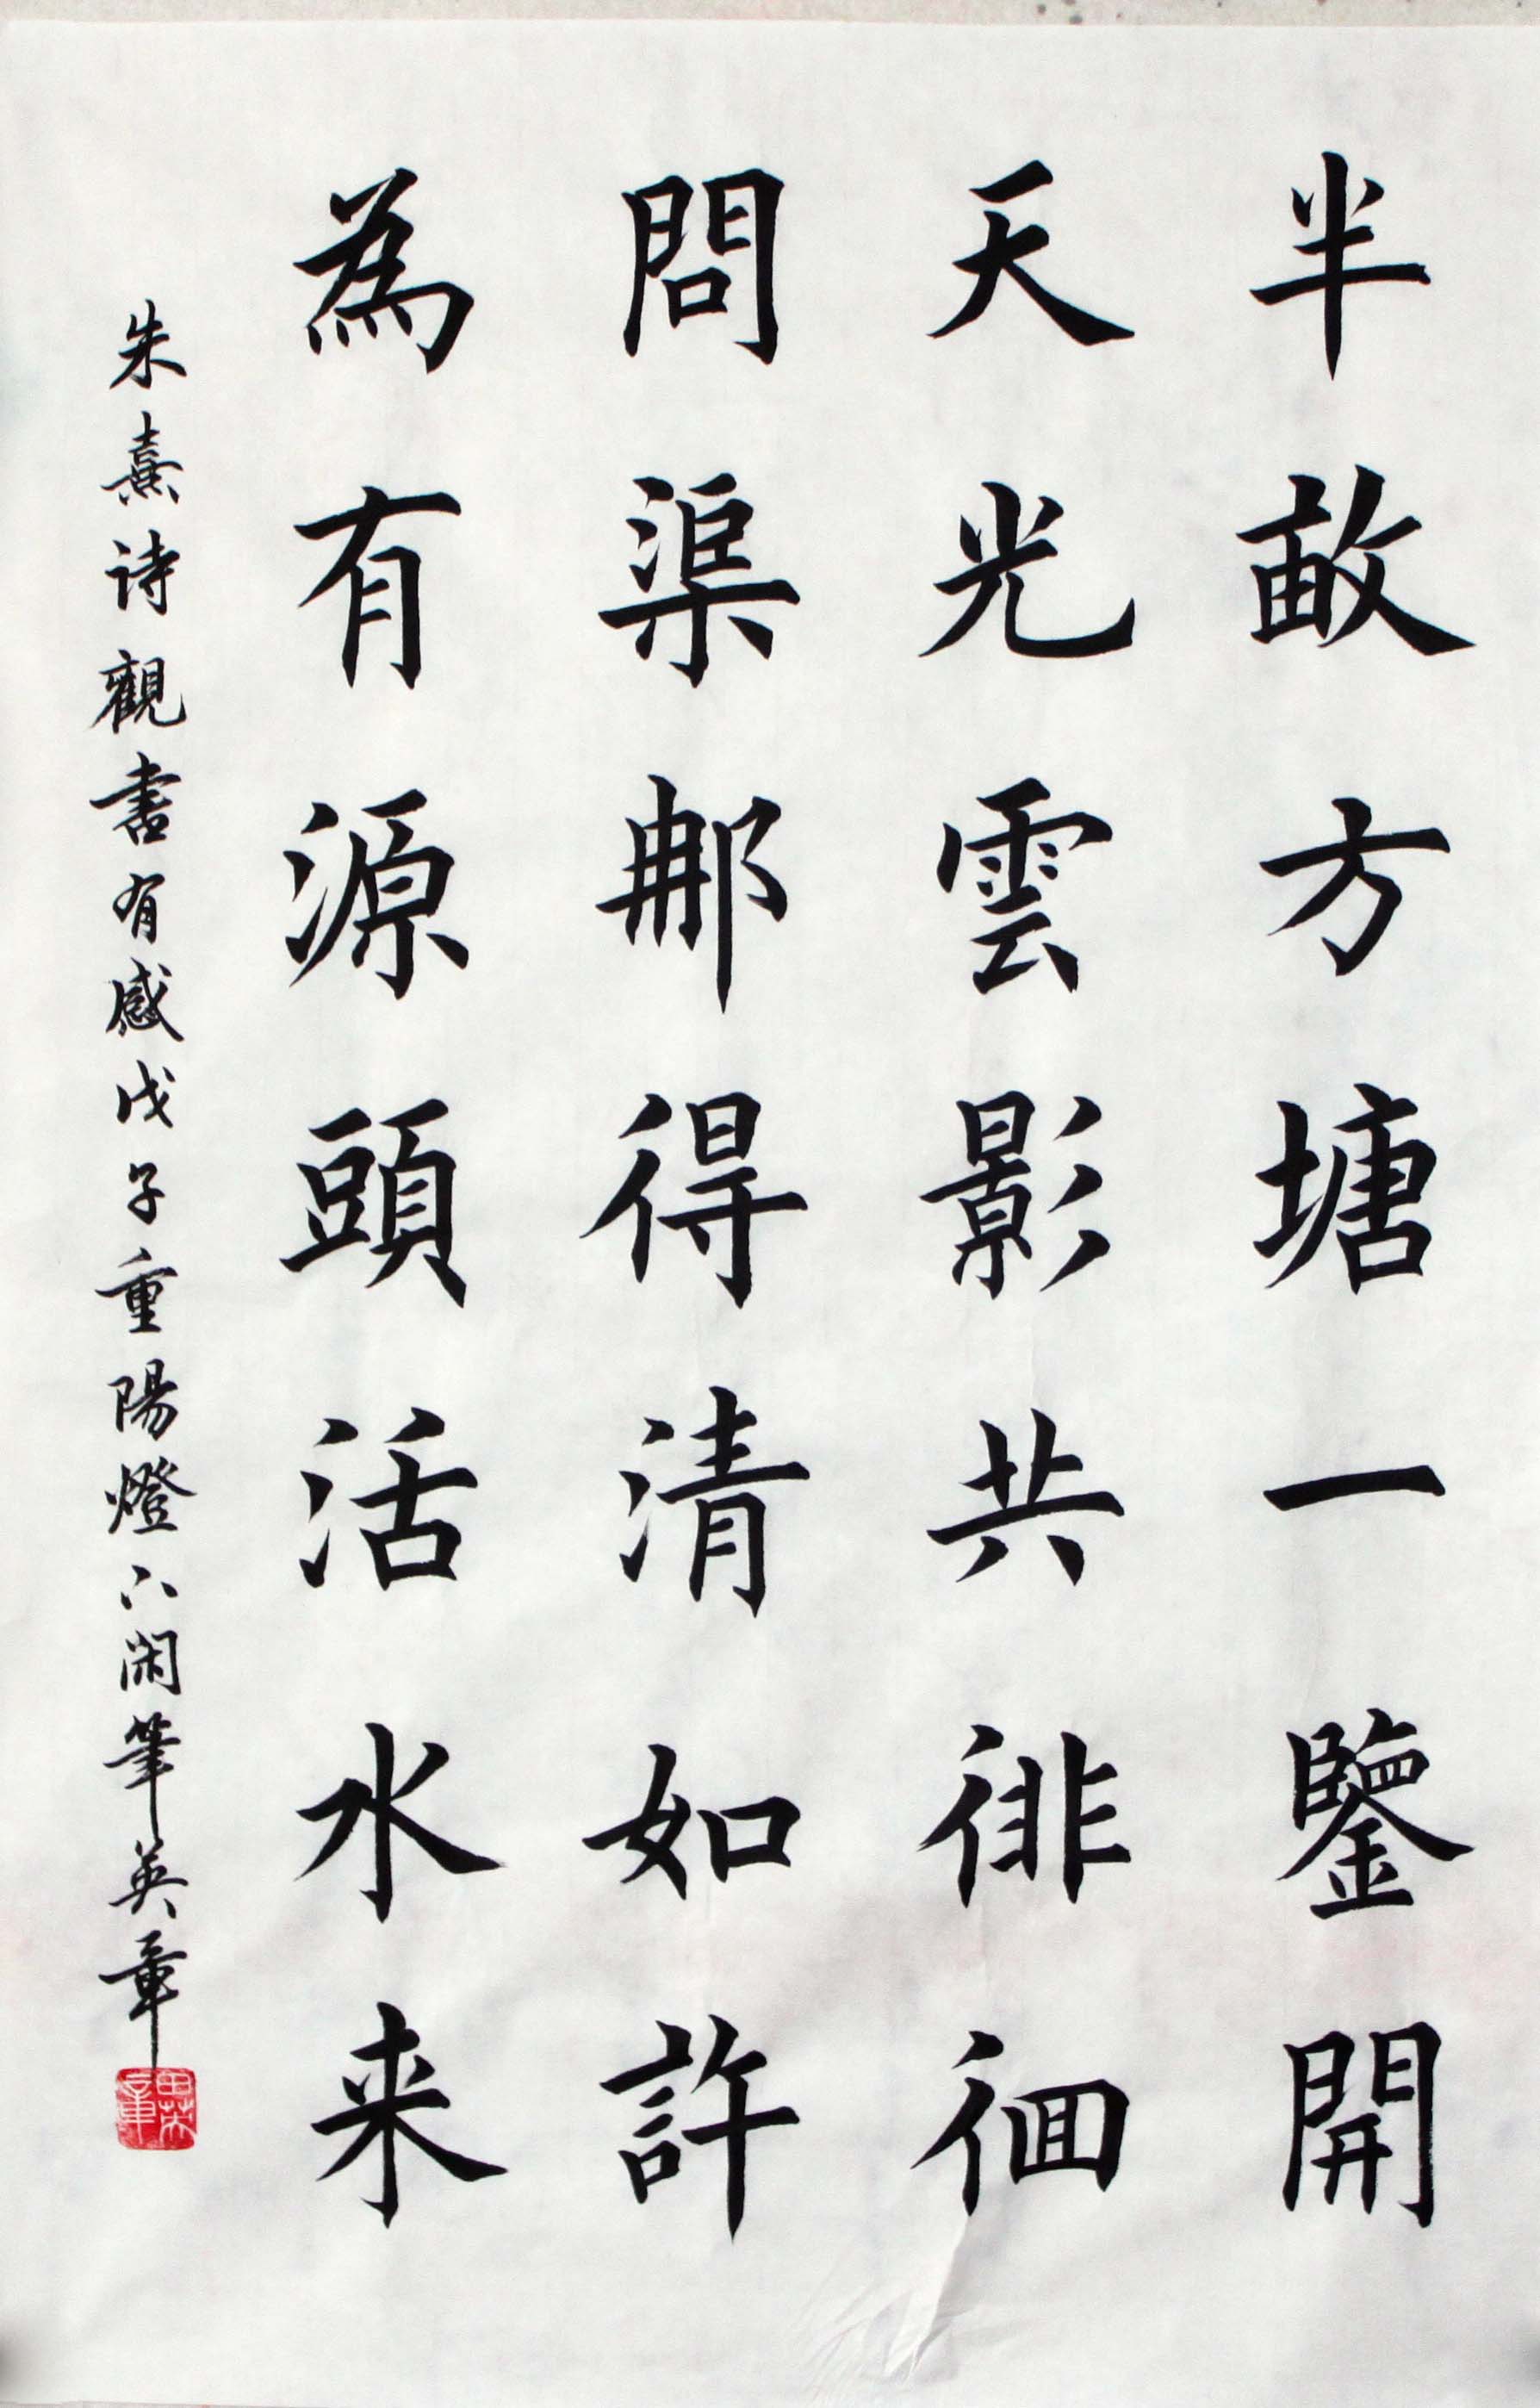 半畝方塘一鑒開
天光雲影共徘徊
問渠那得清如許
為有源頭活水来
朱熹诗觀書有感戊子重陽燈下閑筆英章